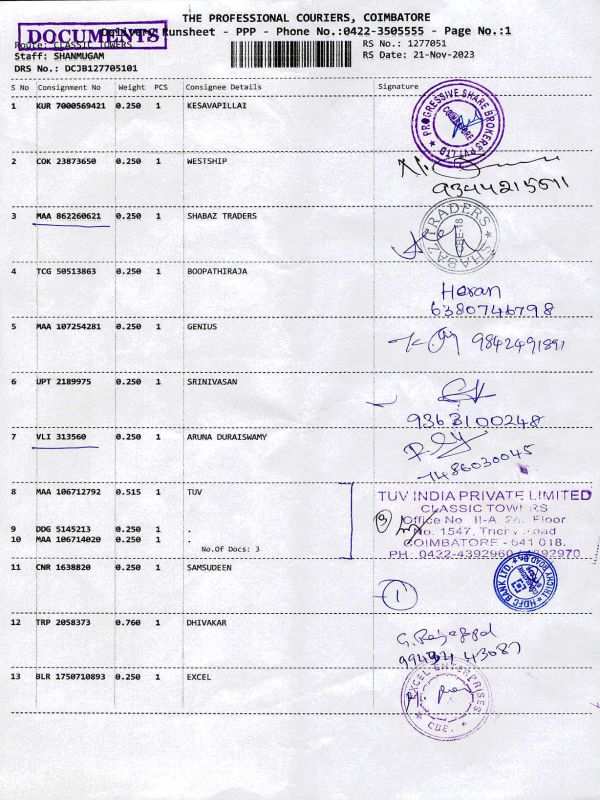 THE PROFESSIONAL COURIERS, COIMBATORE
DOCUMENTS
Delivery Runsheet - PPP - Phone No.:0422-3505555 - Page No.:1
Route: CLASSIC TOWERS
RS No.: 1277051
Staff: SHANMUGAM
RS Date: 21-Nov-2023
DRS No.: DCJB127705101
S No Consignment No Weight PCS Consignee Details Signature
1 KUR 7000569421 0.250 1 KESAVAPILLAI
PROGRESSIVE SHARE BROKERS PVT LTD
COIMBATORE
2 COK 23873650 0.250 1 WESTSHIP
3 MAA 862260621 0.250 1 SHABAZ TRADERS
SHABAZ TRADERS
CBE-18
4 TCG 50513863 0.250 1 BOOPATHIRAJA
Haran
6380746798
5 MAA 107254281 0.250 1 GENIUS
9842491891
6 UPT 2189975 0.250 1 SRINIVASAN
9363100248
7 VLI 313560 0.250 1 ARUNA DURAISWAMY
7486030045
8 MAA 106712792 0.515 1 TUV
TUV INDIA PRIVATE LIMITED
CLASSIC TOWERS
Office No II-A Floor
9 DDG 5145213 0.250 1 .
3
No. 1547, Trichy Road
10 MAA 106714020 0.250 1 .
COIMBATORE - 641 018.
No.Of Docs: 3
PH: 0422-4392960
11 CNR 1638820 0.250 1 SAMSUDEEN
1
HDFC BANK LTD.
12 TRP 2058373 0.760 1 DHIVAKAR
G. Rajagopal
13 BLR 1750710893 0.250 1 EXCEL
EXCEL ENTERPRISES
CBE.